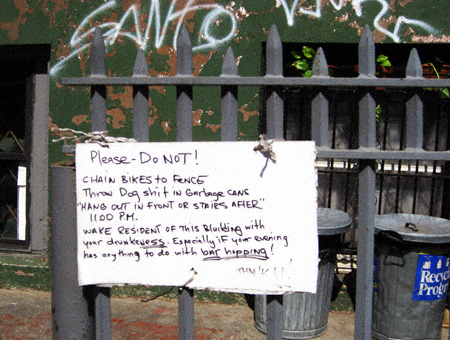 SANTO
Please - Do NOT!
CHAIN BIKES TO FENCE
Throw Dog shit in Garbage cans
"HANG OUT IN FRONT OR STAIRS AFTER"
11:00 P.M.
WAKE RESIDENT OF THIS Bluilding with
your drunkeness. Especially if your evening
has anything to do with bar hopping!
Recyc
Progr